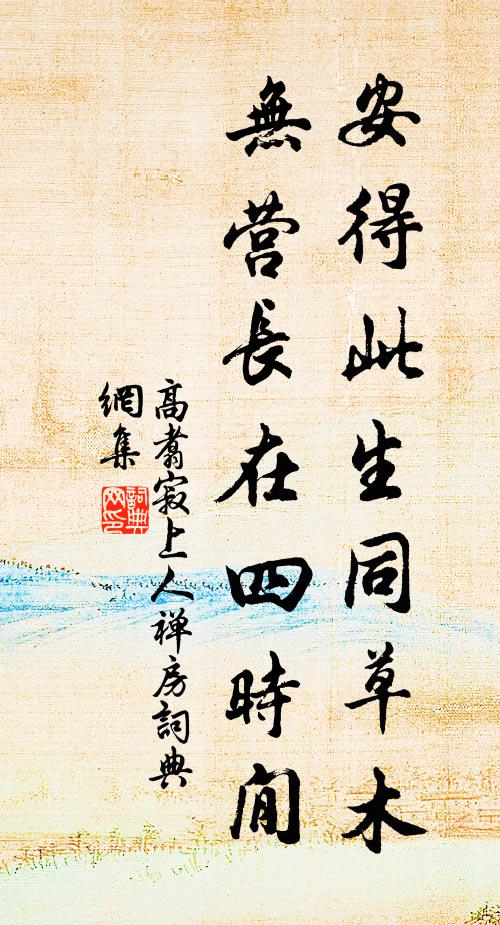 安得此生同草木
無营長在四時間
高翥寂上人禅房詞典
網集
詞典
网印